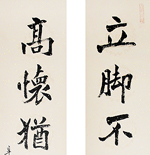 立脚不
高懷猶